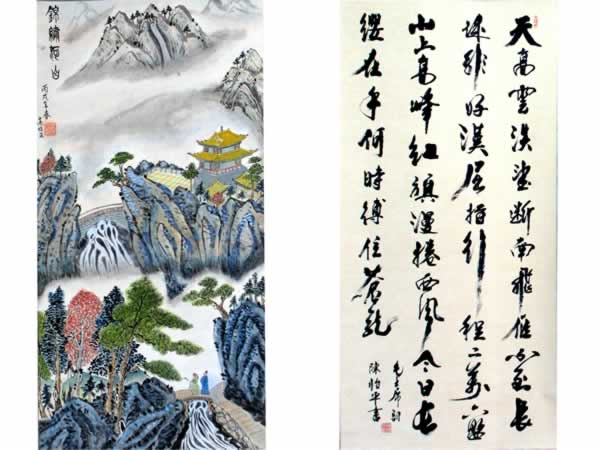 錦繡河山
丙戌年春
天高雲淡望断南飛雁不到長
城非好漢屈指行程二萬六盤
山上高峰紅旗漫捲西風今日長
纓在手何時縛住蒼龍
毛主席詞
陳怡平書